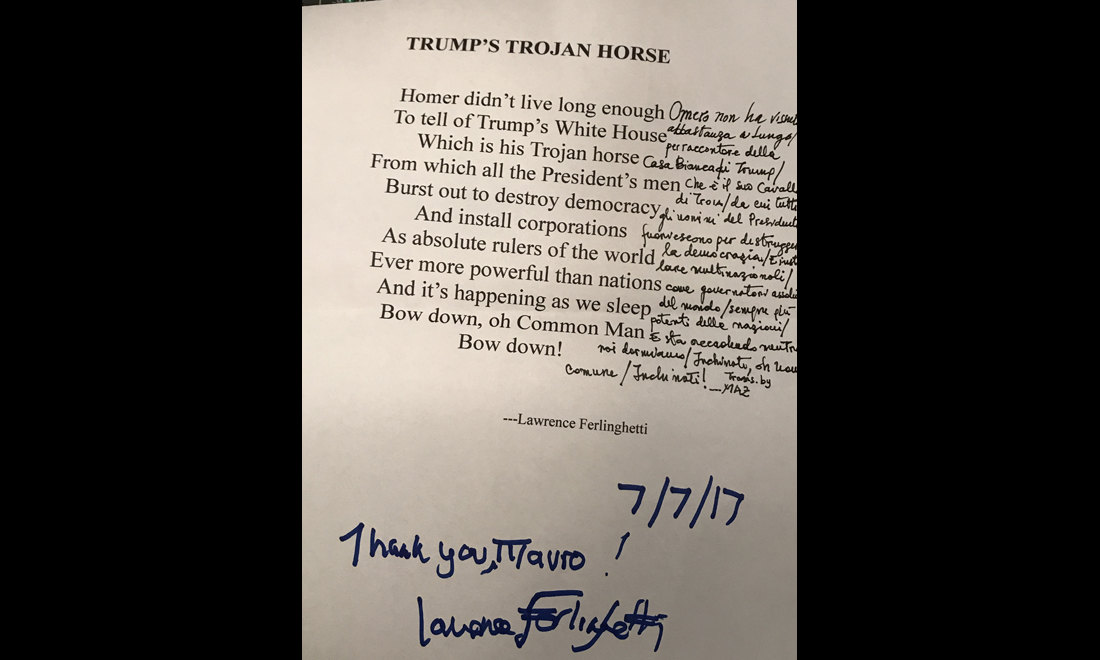 TRUMP'S TROJAN HORSE
Homer didn't live long enough
To tell of Trump's White House
Which is his Trojan horse
From which all the President's men
Burst out to destroy democracy
And install corporations
As absolute rulers of the world
Ever more powerful than nations
And it's happening as we sleep
Bow down, oh Common Man
Bow down!
Omero non ha
abbastanza a lungo/
per raccontare della
Casa Bianca di Trump/
che è il suo
di Troia/da cui
gli uomini del
fuoriescono per
la democrazia/
multinazionali/
come governatori
del mondo/sempre più
potenti delle nazioni/
E sta accadendo
noi dormiamo/Inchinati, oh
comune/Inchinati! Trans. by
—MAZ
---Lawrence Ferlinghetti
7/7/17
Thank you, Mauro!
Lawrence Ferlinghetti